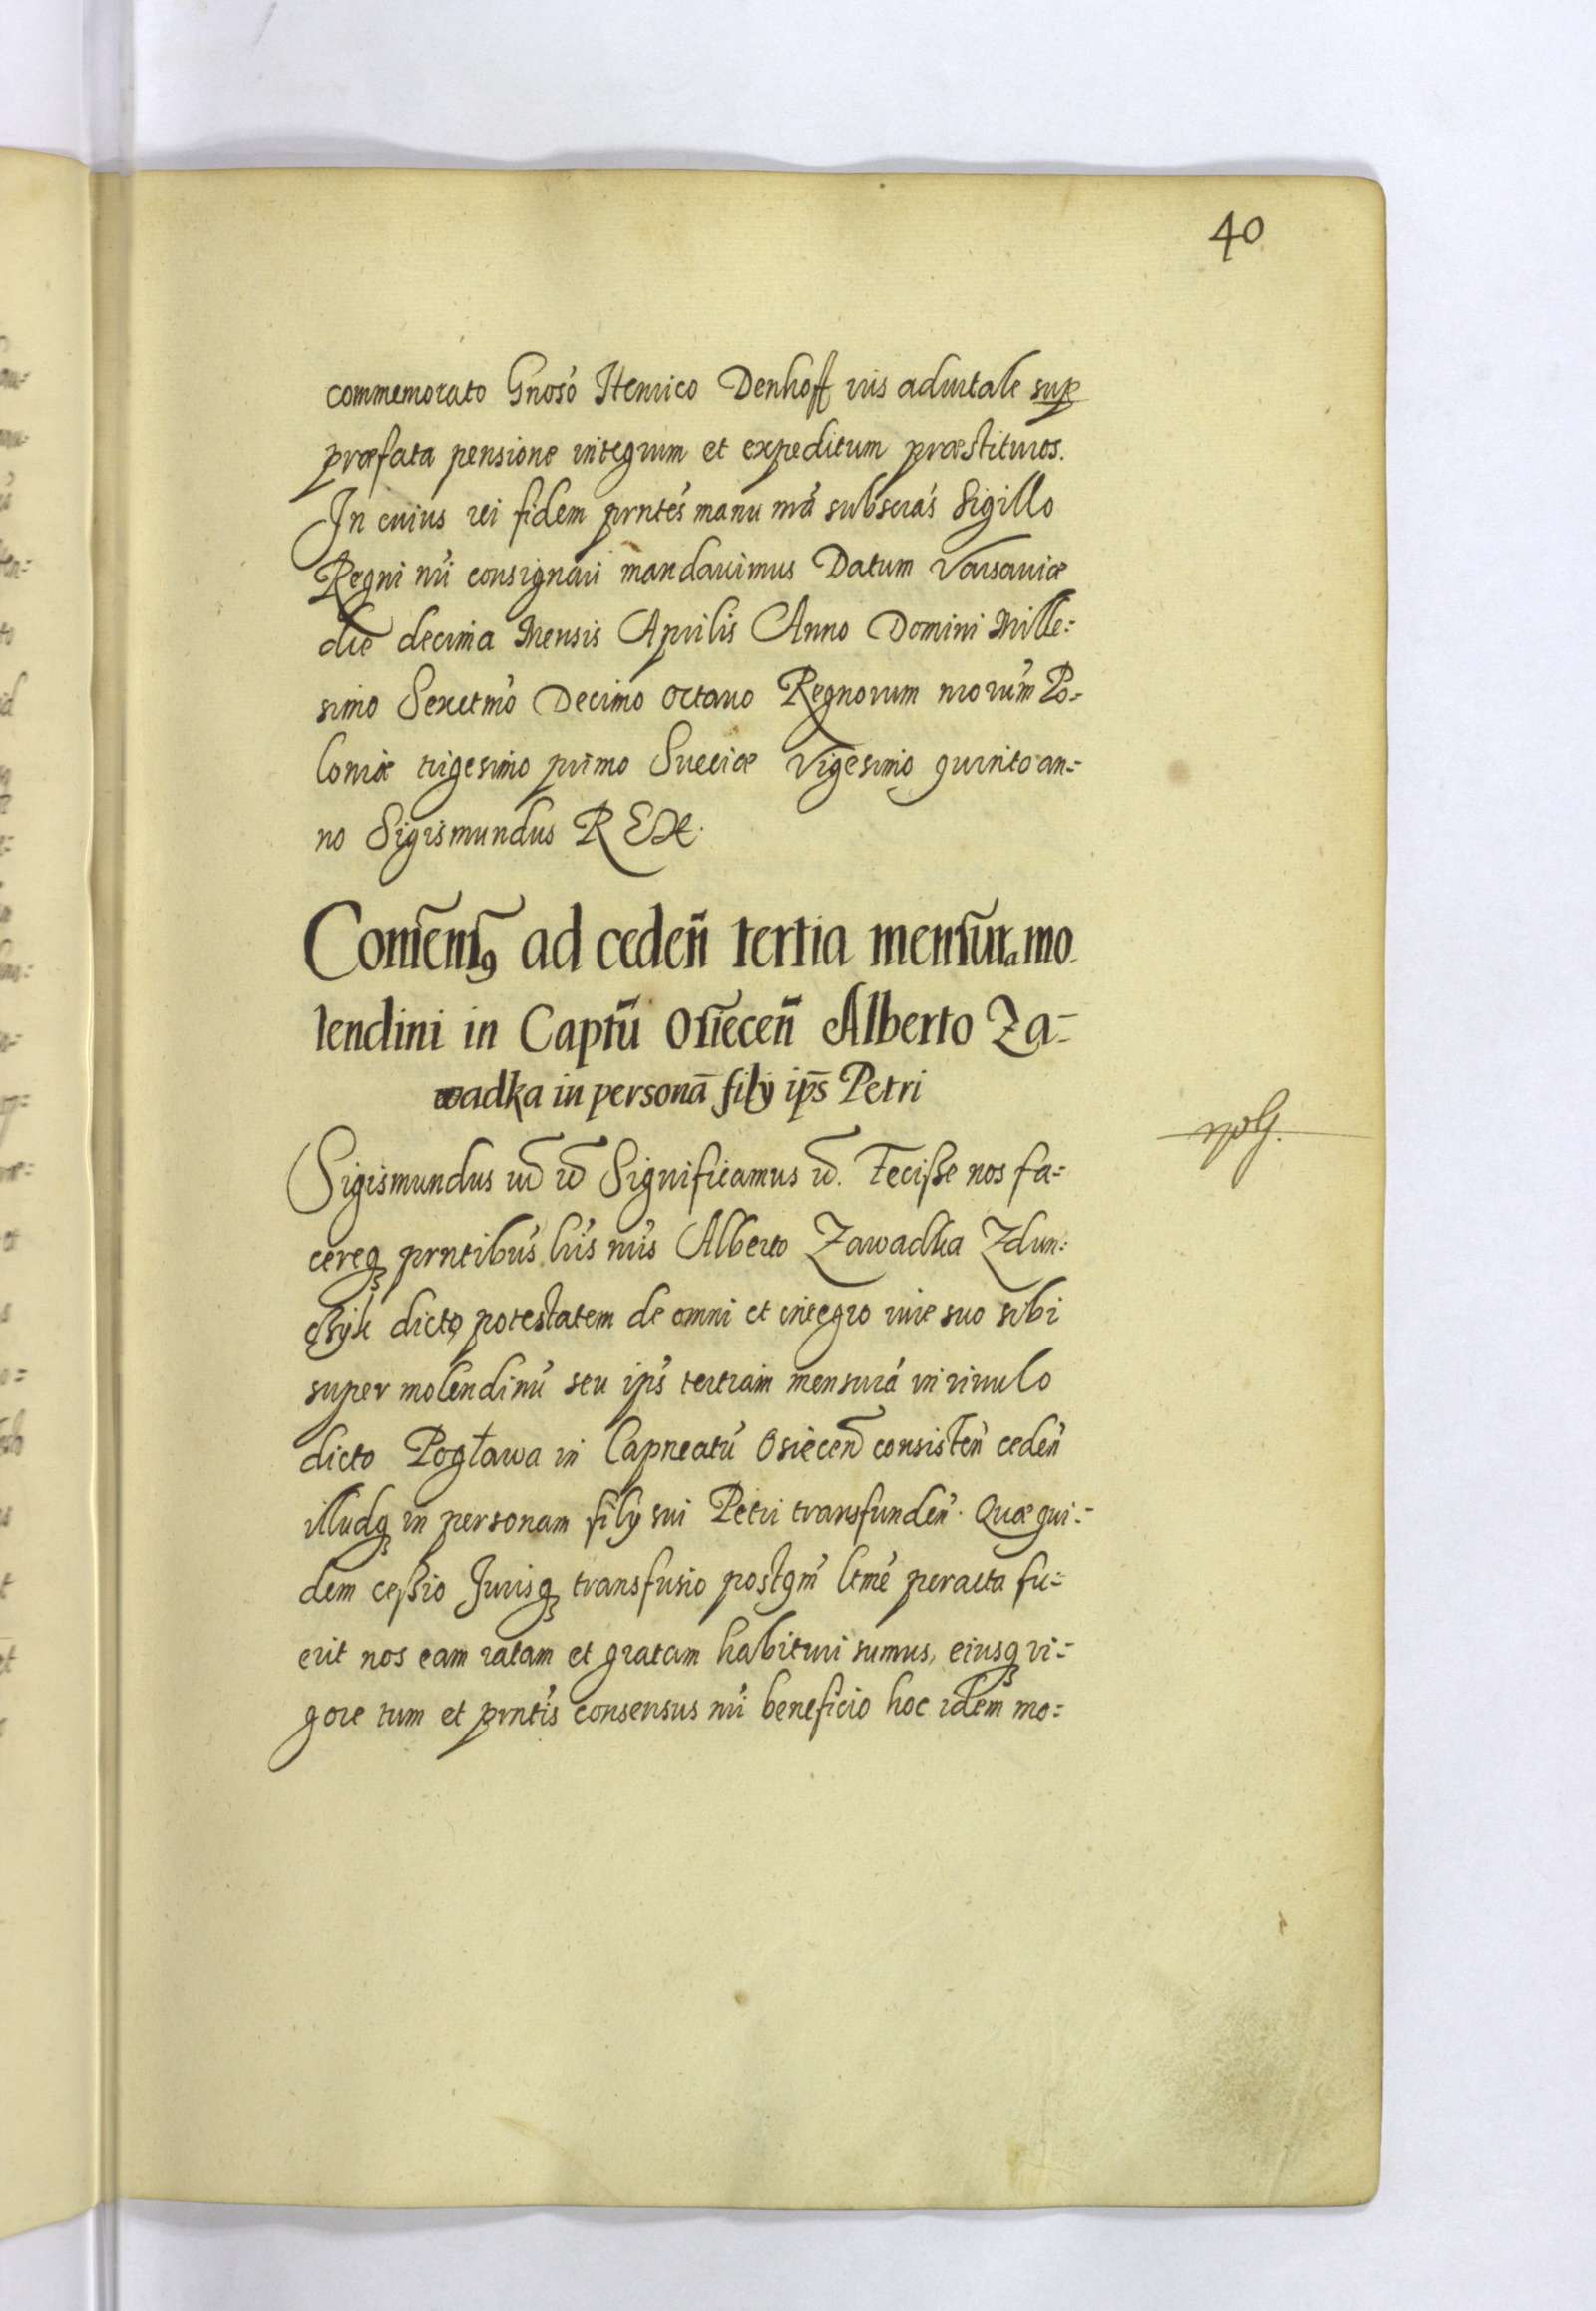 40
commemorato Gnoso Henrico Denhoff ius aduitale sup
præfata pensione integrum et expeditum præstituros.
In cuius rei fidem prntes manu nra subscras Sigillo
Regni nri consignari mandauimus Datum Varsauiæ
die decima Mensis Aprilis Anno Domini Mille=
simo Sexctmo Decimo octauo Regnorum nrorum Po=
loniæ trigesimo primo Sueciæ Vigesimo quinto an=
no Sigismundus REX.
Consens9 ad ceden tertia mensura mo
lendini in Captu Osiecen Alberto Za=
wadka in persona filij ips Petri
Sigismundus Significamus Fecisse nos fa=
cereq prntibus lris nris Alberto Zawadka Zdun=
czyk dicto potestatem de omni et integro iure suo sibi
super molendinu seu ips tertiam mensura in riuulo
dicto Pogława in Capneatu Osiecen consisten ceden
illudq in personam filij sui Petri transfunden. Quæ qui=
dem cessio Jurisq transfusio postqm ltme peracta fu=
erit nos eam ratam et gratam habituri sumus, eiusq vi=
gore tum et prntis consensus nri beneficio hoc idem mo=